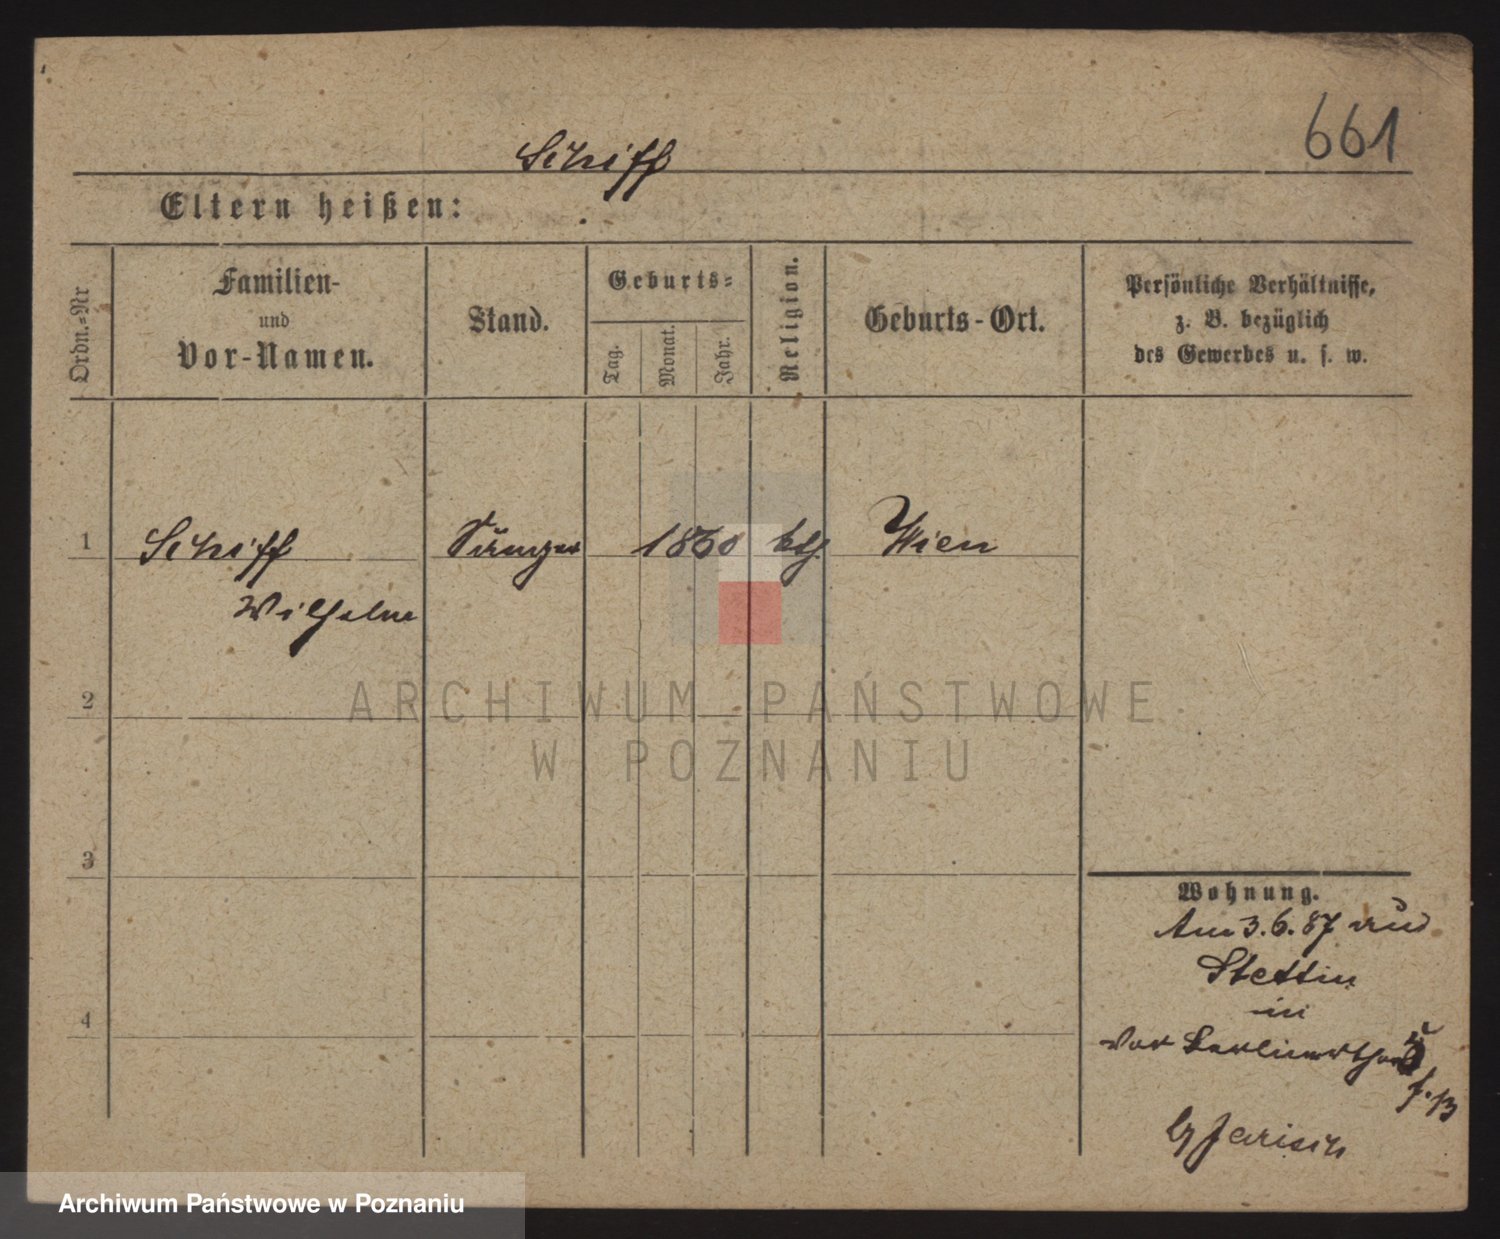 661
Schiff
Eltern heißen:
Ordn.=Nr
Familien-
und
Vor-Namen.
Stand.
Geburts=
Tag.
Monat.
Jahr.
Religion.
Geburts-Ort.
Persönliche Verhältnisse,
z. B. bezüglich
des Gewerbes u. s. w.
1
Schiff
Wilhelm
Sänger
1860
kth
Wien
2
3
4
Wohnung.
Am 3. 6. 87 aus
Stettin
in
vor Berlinerthor
b/ Jarisch
ARCHIWUM PAŃSTWOWE
W POZNANIU
Archiwum Państwowe w Poznaniu